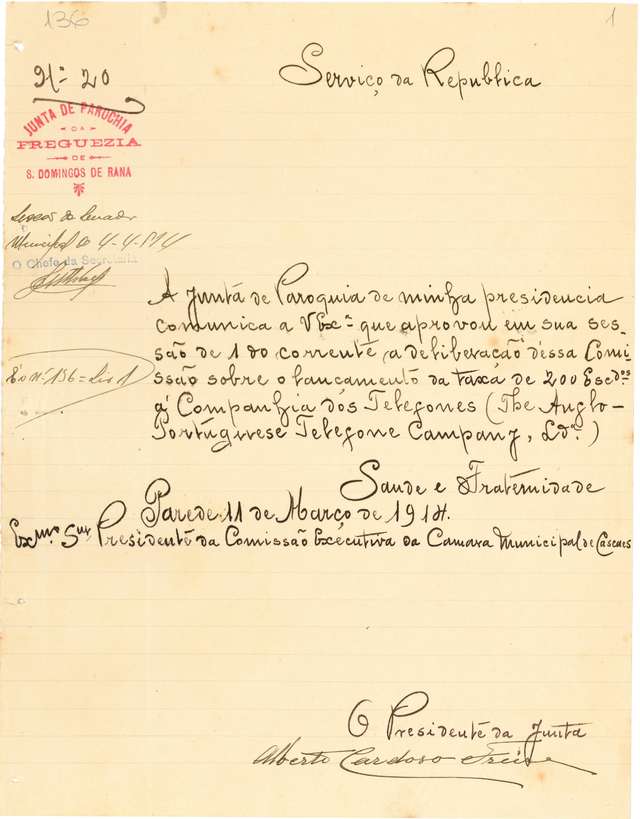 136
1
Nº 20
Serviço da Republica
JUNTA DE PAROCHIA
DA
FREGUEZIA
DE
S. DOMINGOS DE RANA
Municipal 4-4-914
O Chefe da Secretaria
A Junta de Paroquia de minha presidencia
comunica a VExª que aprovou em sua ses-
são de 1 do corrente a deliberação dessa Comi-
ssão sobre o lançamento da taxa de 200 Escdos
á Companhia dos Telefones (The Anglo-
Portuguese Telefone Campany, Ldª.)
É o nº 136 = Lis 1
Saude e Fraternidade
Parede 11 de Março de 1914.
Exmo. Snr. Presidente da Comissão Executiva da Camara Municipal de Cascaes
O Presidente da Junta
Alberto Cardoso Freire